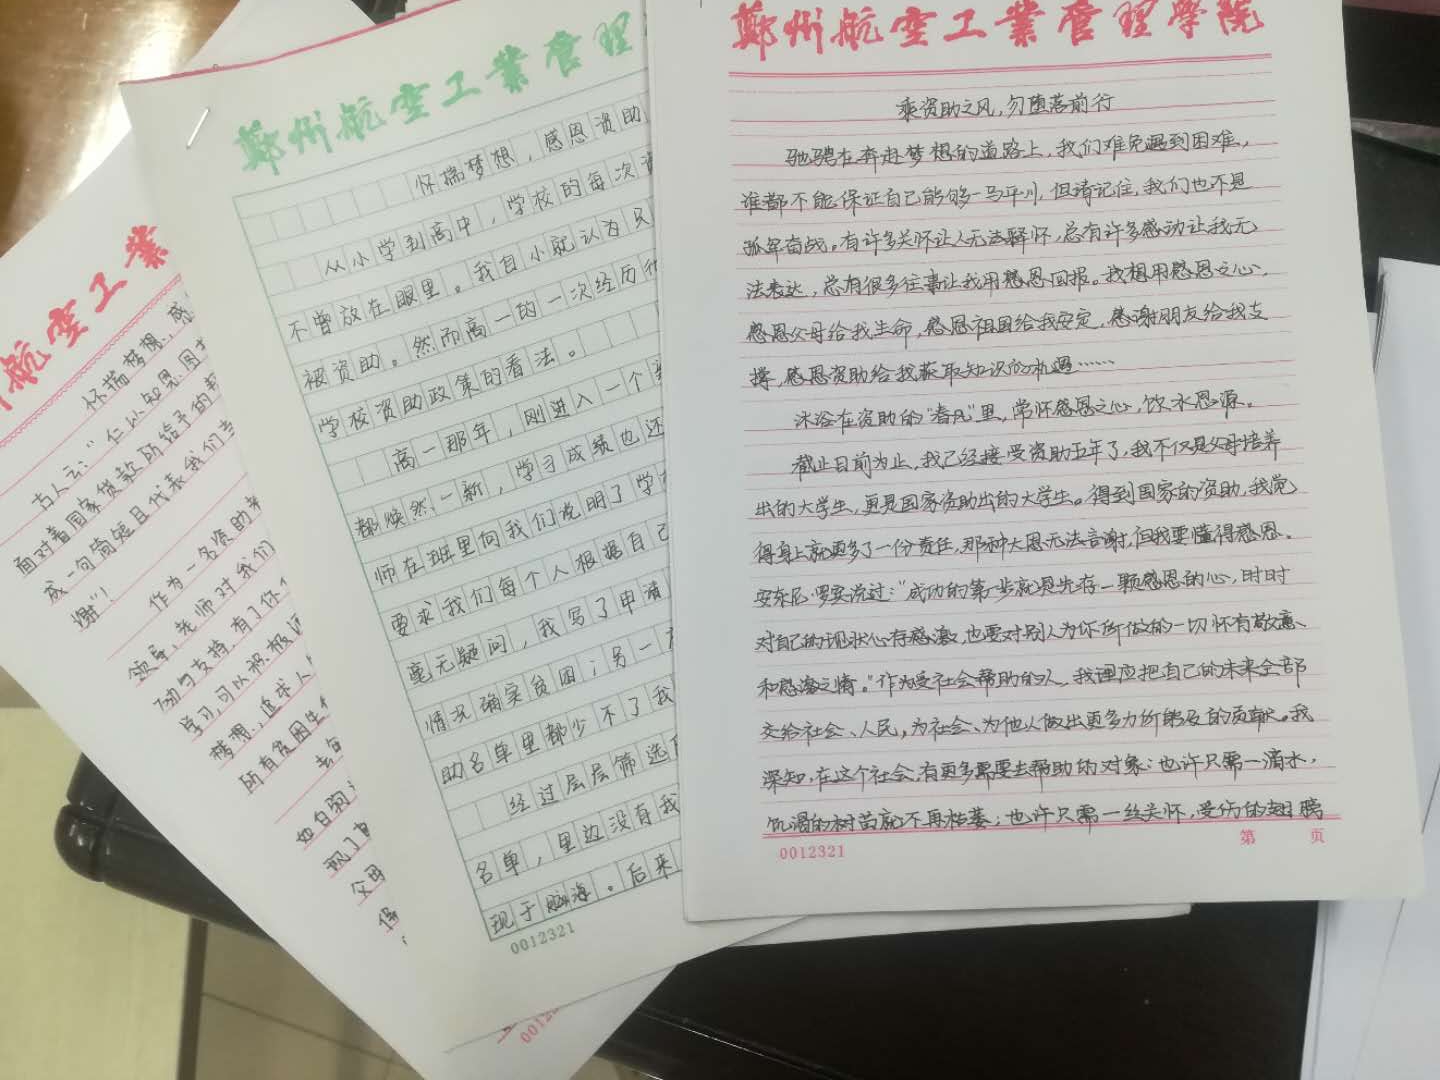 郑州航空工业管理学院
乘资助之风,勿堕落前行
驰骋在奔赴梦想的道路上,我们难免遇到困难,
谁都不能保证自己能够一马平川,但请记住,我们也不是
孤军奋战。有许多关怀让人无法释怀,总有许多感动让我无
法表达,总有很多往事让我用感恩回报。我想用感恩之心,
感恩父母给我生命,感恩祖国给我安定,感谢朋友给我支
撑,感恩资助给我获取知识的机遇……
沐浴在资助的"春风"里,常怀感恩之心,饮水思源。
截止目前为止,我已经接受资助五年了,我不仅是父母培养
出的大学生,更是国家资助出的大学生。得到国家的资助,我觉
得身上就更多了一份责任,那种大恩无法言谢,但我要懂得感恩。
安东尼·罗宾说过:"成功的第一步就是先存一颗感恩的心,时时
对自己的现状心存感激,也要对别人为你所做的一切怀有敬意
和感激之情。"作为受社会帮助的人,我理应把自己的未来全部
交给社会、人民,为社会、为他人做出更多力所能及的贡献。我
深知,在这个社会,有更多需要去帮助的对象:也许只需一滴水,
饥渴的树苗就不再枯萎;也许只需一丝关怀,受伤的翅膀
0012321
第 页
郑州航空工业管理
怀揣梦想,感恩资助
从小学到高中,学校的每次
不曾放在眼里。我自小就认为只
被资助。然而高一的一次经历
学校资助政策的看法。
高一那年,刚进入一个
都焕然一新,学习成绩也还
师在班里向我们说明了学
要求我们每个人根据自己
毫无疑问,我写了申请
情况确实贫困;另一
助名单里都少不了我
经过层层筛选
名单,里边没有我
现于脑海。后来
0012321
航空工业
怀揣梦想,感
古人云:"仁以知恩,图
面对着国家贷款所给予的
成一句简短且代表我们
谢"!
作为一名资助
领导,老师对我们
励与支持,有了你
学习,可以积极
梦想,追求人
所有贫困生
去
如自
职门
父母
保
0012